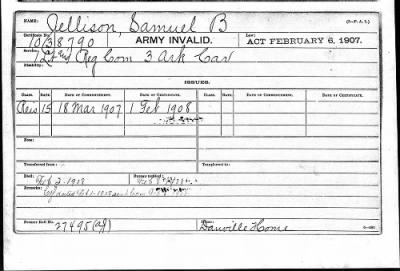 NAME: Jellison, Samuel B (3-P. A. R.)
Certificate No. 1038790 ARMY INVALID. Law: ACT FEBRUARY 6, 1907.
Service: Reg Com 3 Ark Cav
Disability:
ISSUES.
CLASS. RATE. DATE OF COMMENCEMENT. DATE OF CERTIFICATE. CLASS. RATE. DATE OF COMMENCEMENT. DATE OF CERTIFICATE.
Reis 15 18 Mar 1907 1 Feb 1908
From:
Transferred from: Transferred to:
Died: Feb 2-1908 Bureau notified:
Remarks:
Former Roll No. 27495 Home: Danville Home